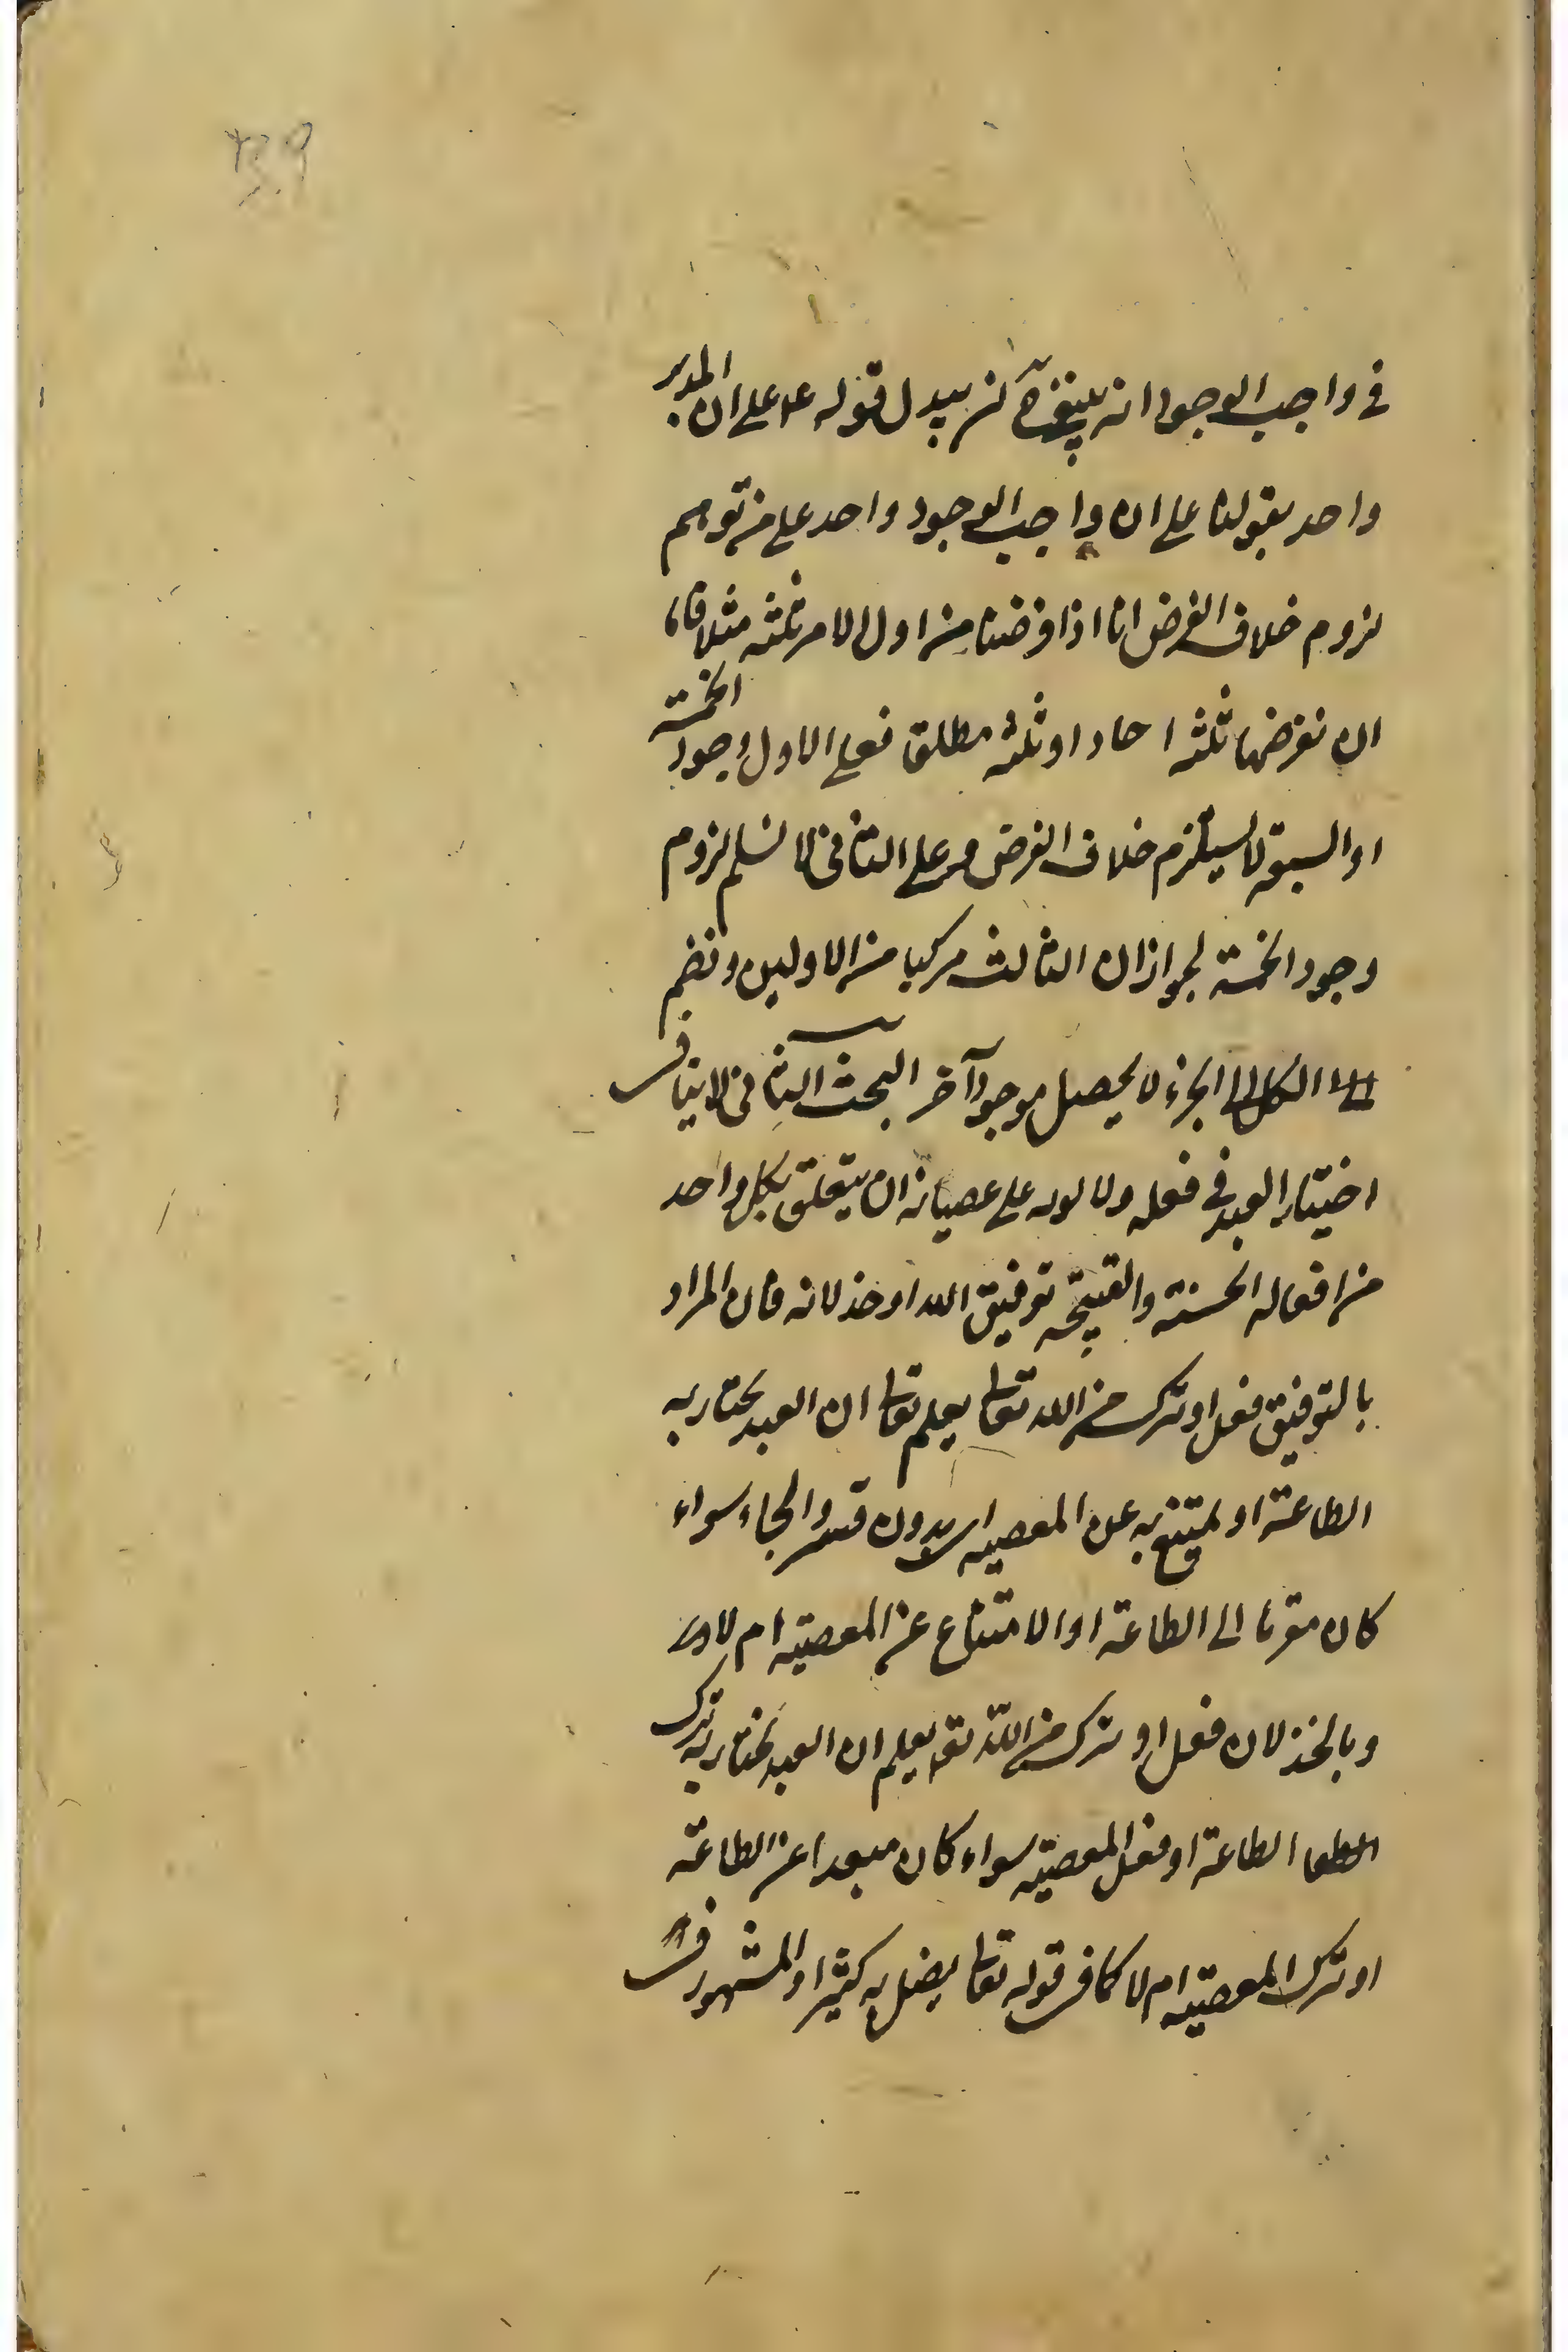 في واجب الوجود انه بيبدل قوله ع على ان المدبر
واحد بقولنا على ان واجب الوجود واحد على من توهم
لزوم خلاف الفرض انا اذا فرضنا من اول الامر ثلثه مثلا فاما
ان نفرضها ثلثه احاد او ثلثه مطلق فعلى الاول وجود الخمسة
او السبعة لا يستلزم خلاف الفرض وعلى الثاني لا نسلم لزوم
وجود الخمسة لجواز ان الثالث مركبا من الاولين و نضم
الكل الى الجزء لا يحصل موجود آخر البحث الثاني لا ينافي
اختيار العبد في فعله ولا لومه على عصيانه ان يتعلق بكل واحد
من افعاله الحسنة والقبيحة توفيق الله او خذلانه فان المراد
بالتوفيق فعل او ترك من الله تعالى يعلم تعالى ان العبد يختار به
الطاعة او يمتنع به عن المعصيه اى بدون قسر والجاء سواء
كان مقربا الى الطاعة او الامتناع عن المعصية ام لا
وبالخذلان فعل او ترك من الله تعـ يعلم ان العبد يختار به ترك
الطاعة او فعل المعصية سواء كان مبعدا عن الطاعة
او ترك المعصية ام لا كما في قوله تعالى يضل به كثيرا والمشهور في